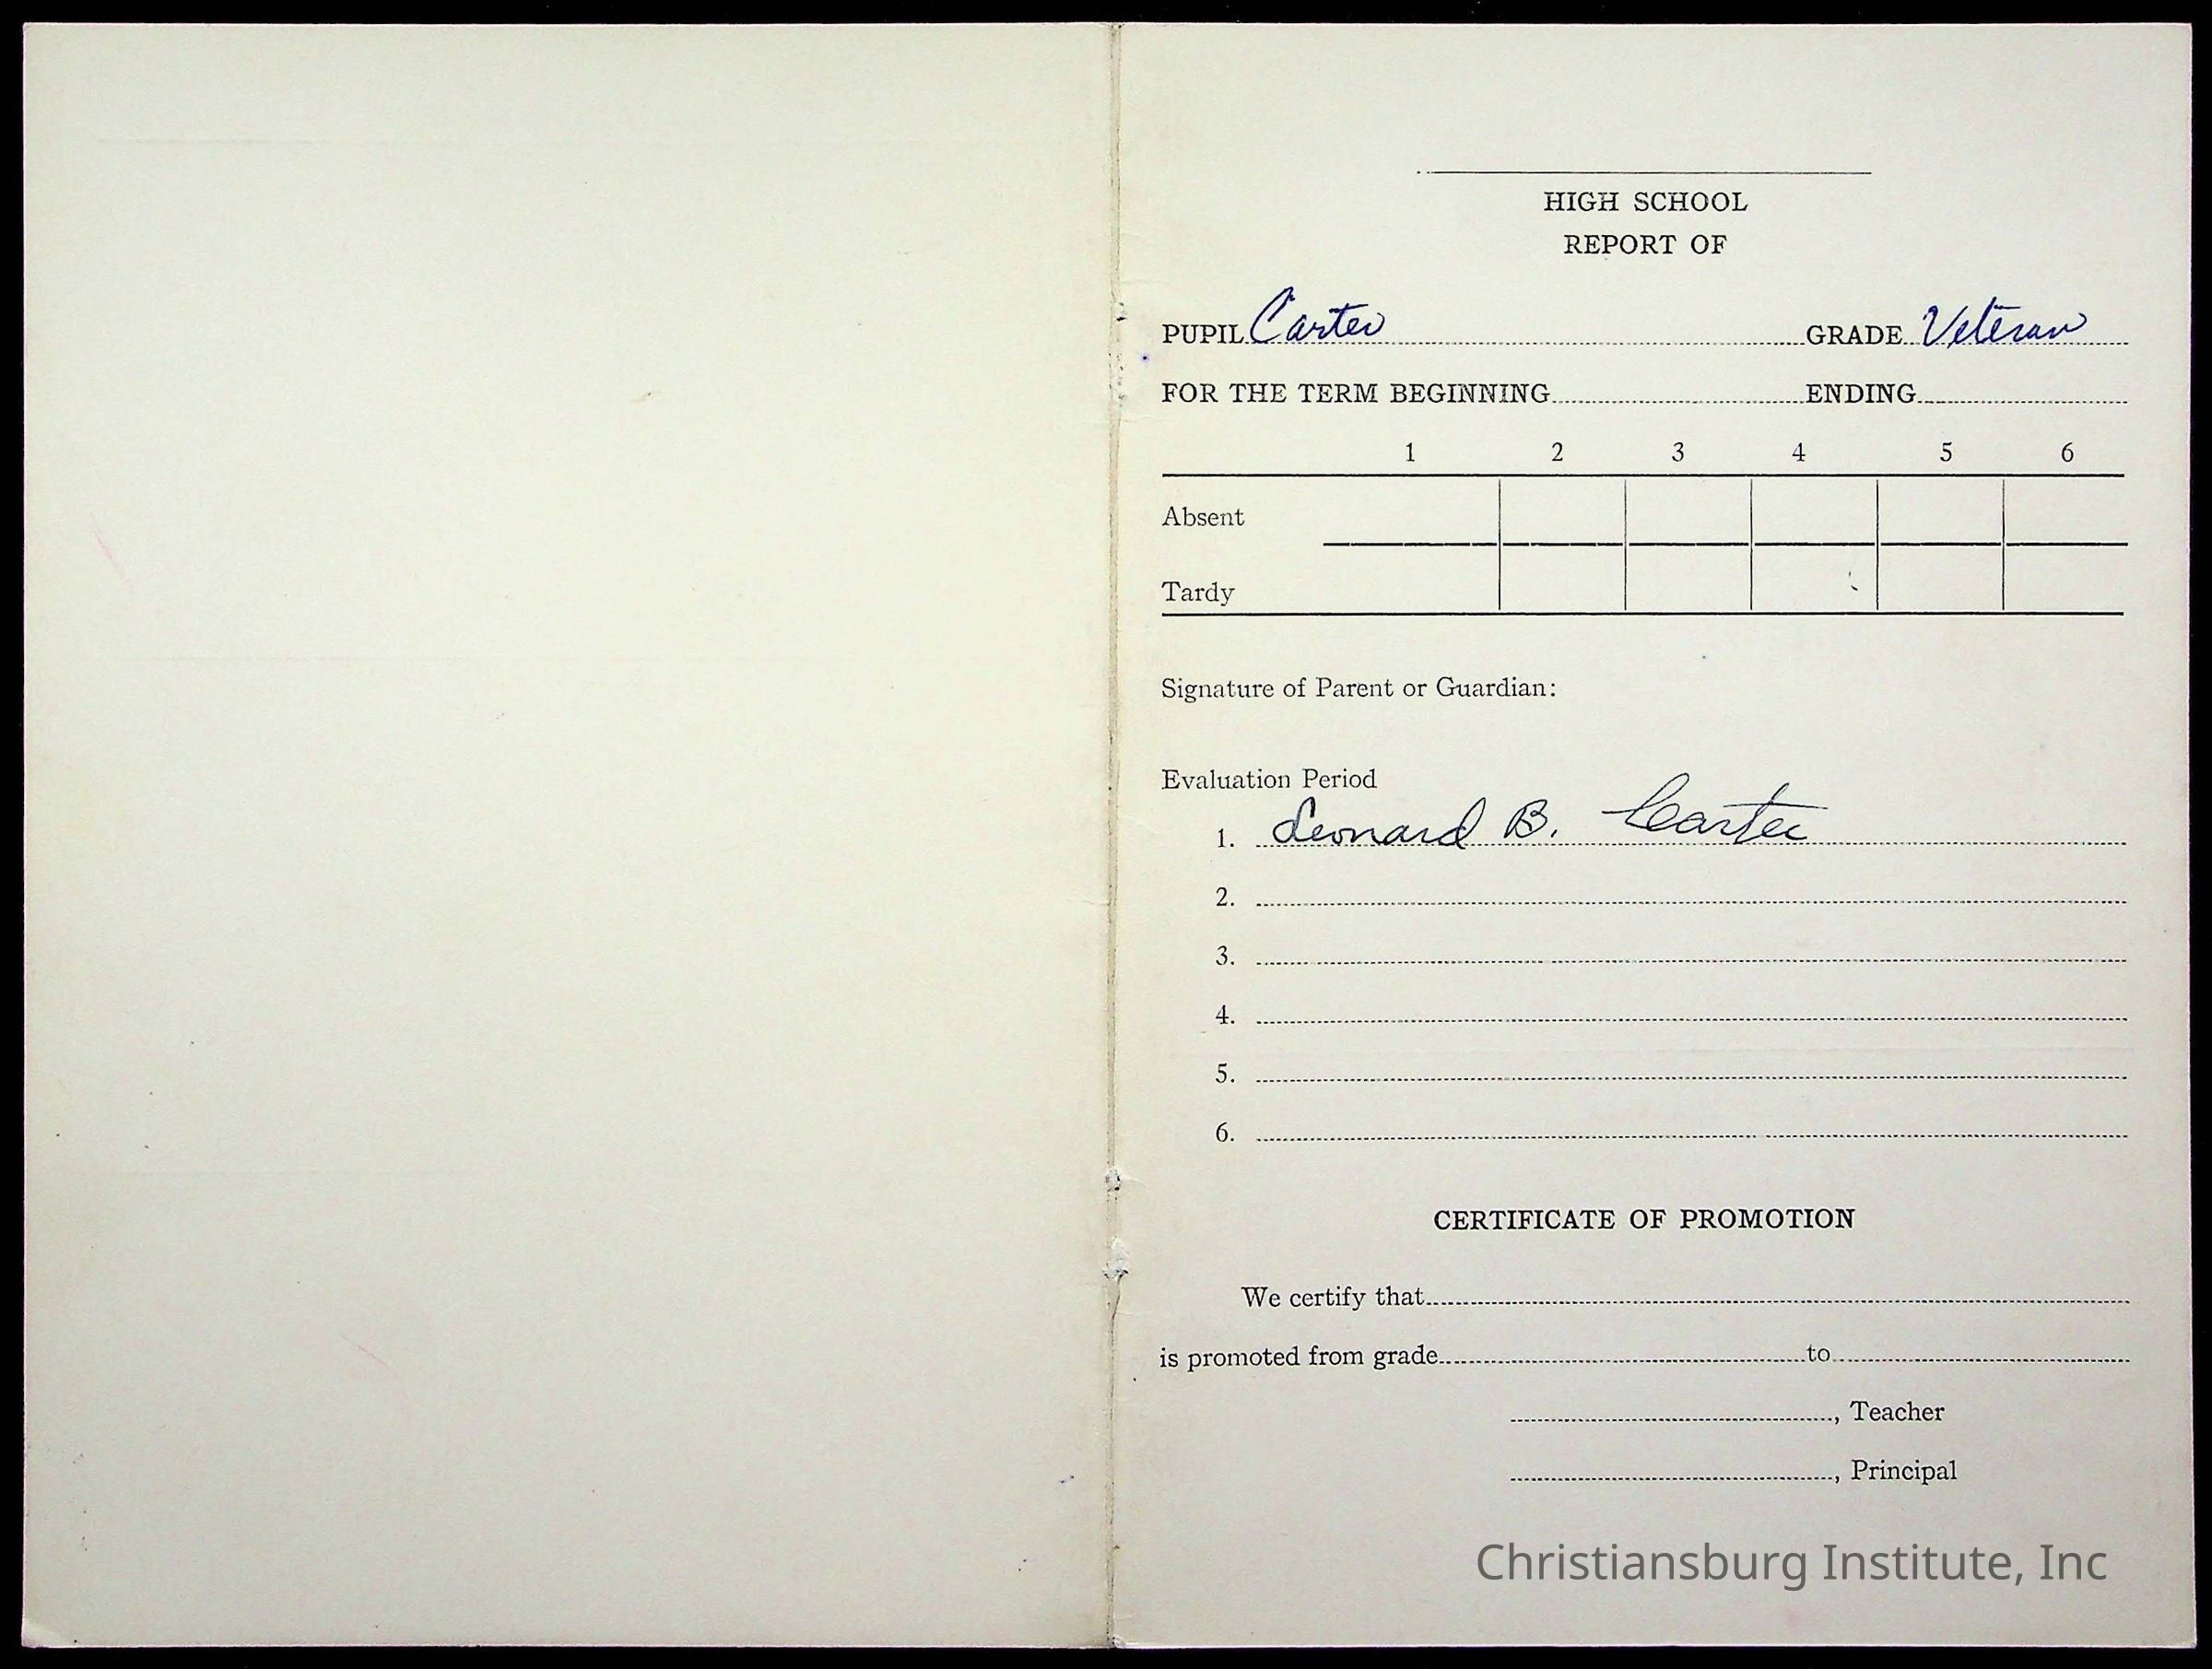 HIGH SCHOOL
REPORT OF
PUPIL Carter GRADE Veteran
FOR THE TERM BEGINNING ENDING
1 2 3 4 5 6
Absent
Tardy
Signature of Parent or Guardian:
Evaluation Period
1. Leonard B. Carter
2.
3.
4.
5.
6.
CERTIFICATE OF PROMOTION
We certify that
is promoted from grade to
, Teacher
, Principal
Christiansburg Institute, Inc